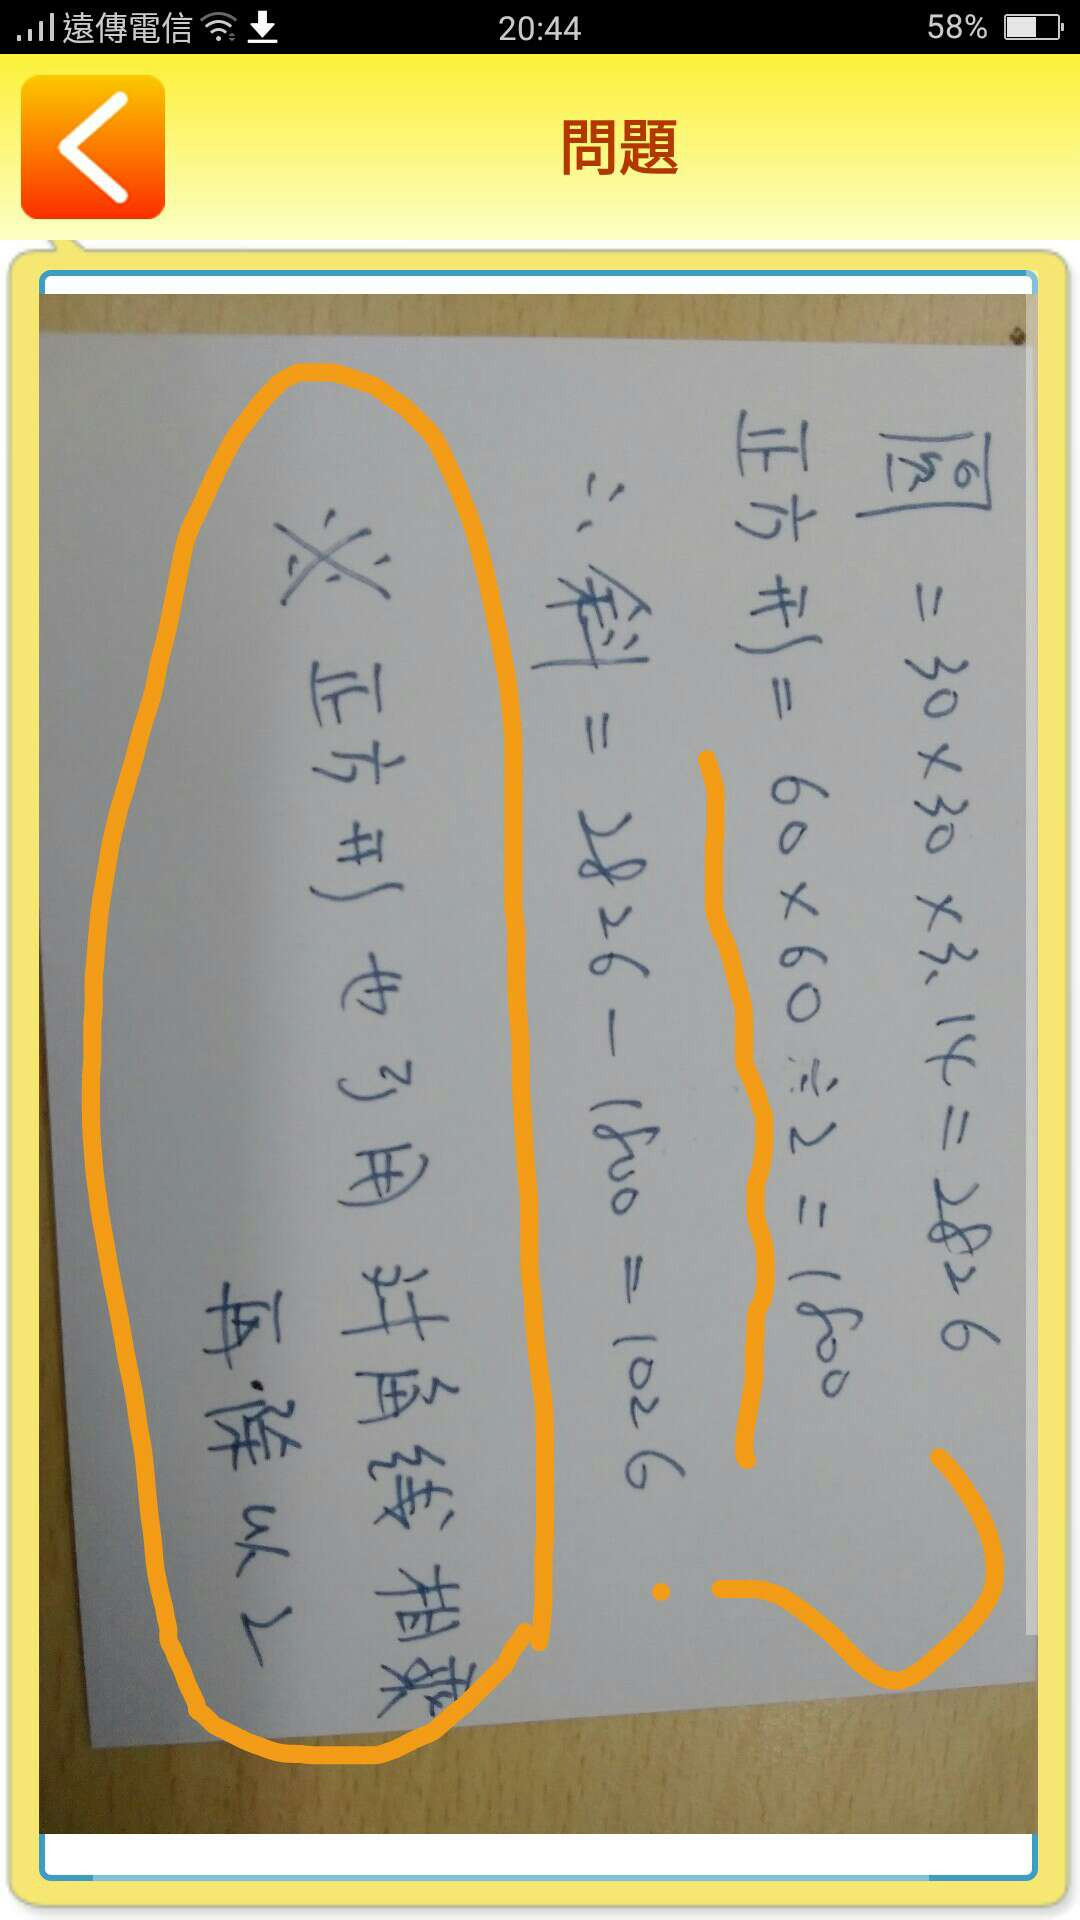 遠傳電信
20:44
58%
問題
圓 = 30 × 30 × 3.14 = 2826
正方形 = 60 × 60 ÷ 2 = 1800
∴ 斜 = 2826 - 1800 = 1026
※ 正方形也可用对角线相乘
再除以2